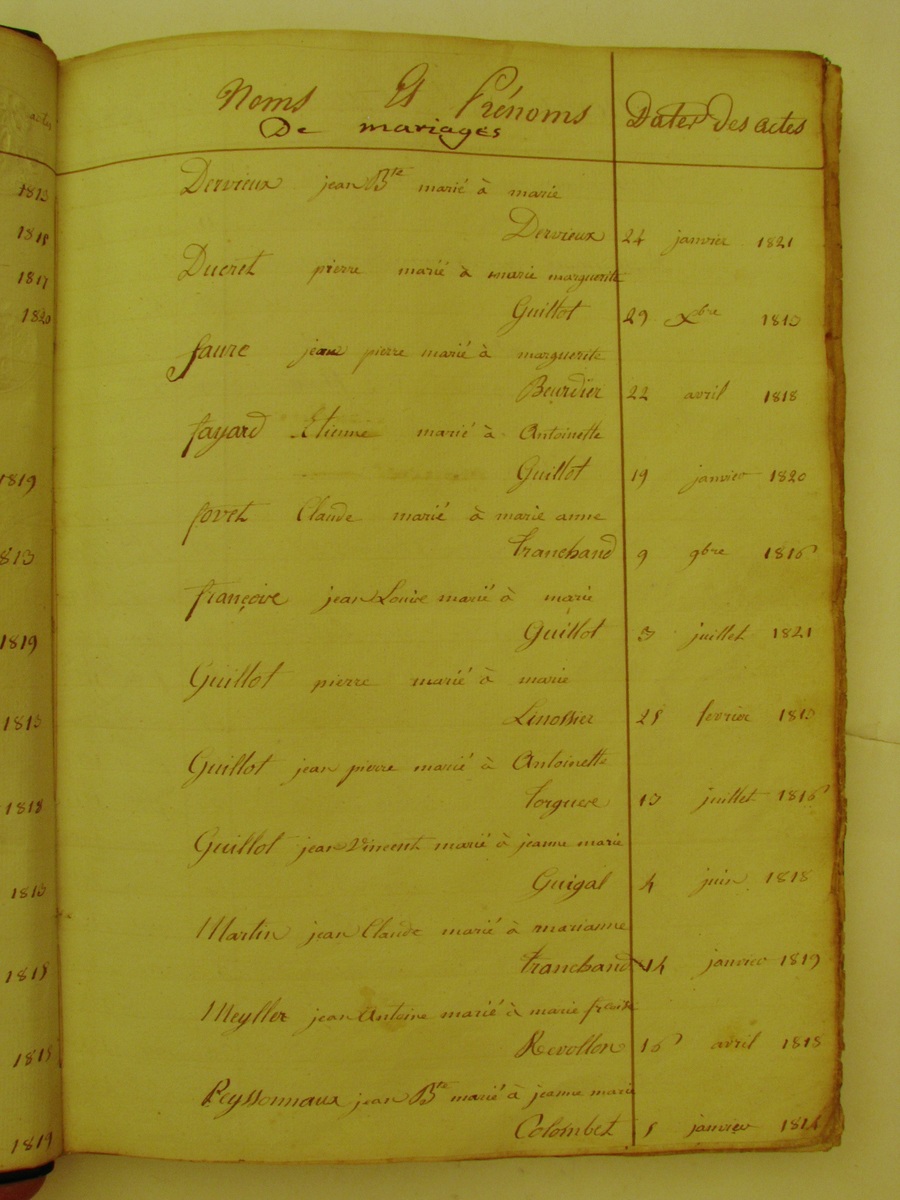 Noms Et Prénoms Dates des actes
De mariages
Dervieux jean Bte marié à marie
Dervieux 24 janvier 1821
Ducret pierre marié à marie marguerite
Guillot 29 Xbre 1813
faure jean pierre marié à marguerite
Beurdier 22 avril 1818
fayard Etienne marié à Antoinette
Guillot 19 janvier 1820
foret Claude marié à marie anne
tranchand 9 9bre 1816
françoise jean Louise marié à marie
Guillot 3 juillet 1821
Guillot pierre marié à marie
Linossier fevrier 1813
Guillot jean pierre marié à Antoinette
forguere 13 juillet 1816
Guillot jean Vincent marié à jeanne marie
Guigal 4 juin 1818
Martin jean Claude marié à marianne
tranchand 14 janvier 1819
Meyller jean Antoine marié à marie
Revollon 16 avril 1818
Peyssonnaux jean Bte marié à jeanne marie
Colombet janvier
1813
1818
1817
1820
1819
1813
1819
1813
1818
1813
1818
1818
1819